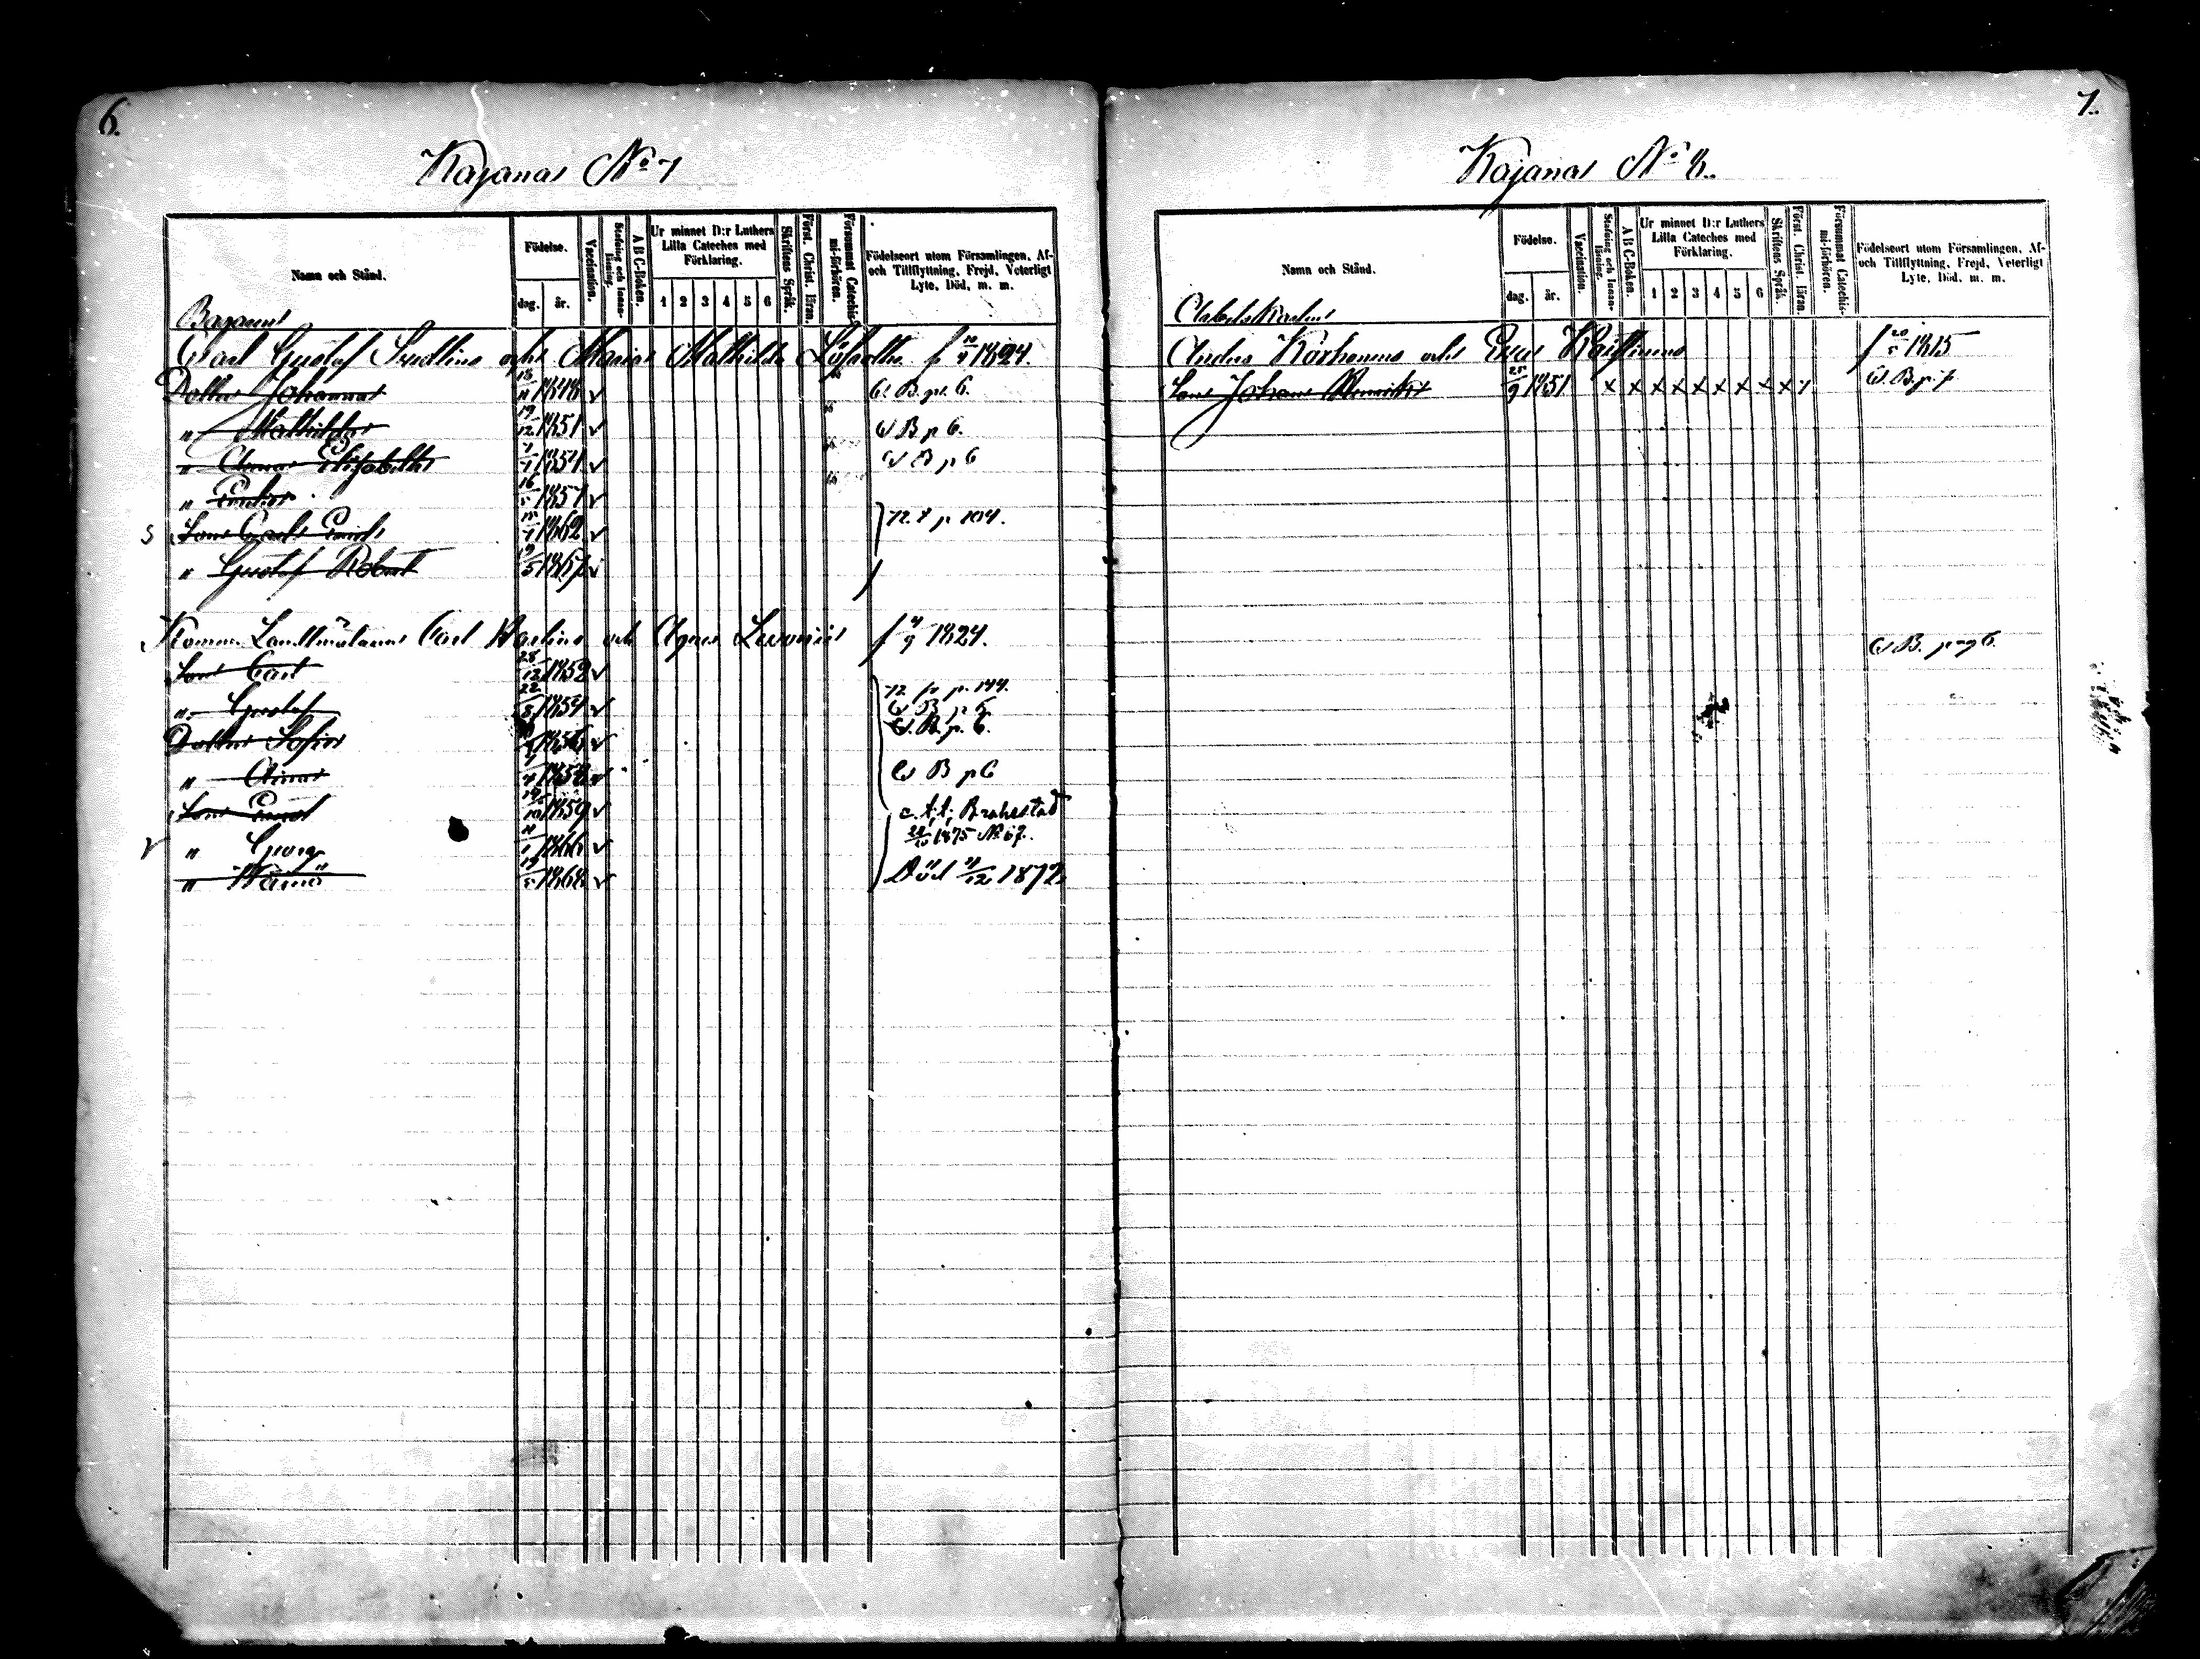 6.
Kajana No 7
Namn och Stånd.
Födelse.
dag. år.
Vaccination.
Stafning och Innanläsning.
A B C-Boken.
Ur minnet D:r Luthers Lilla Cateches med Förklaring.
1 2 3 4 5 6
Skriftens Språk.
Först. Christ. läran.
Försummat Catechismi-förhören.
Födelseort utom Församlingen, Af- och Tillflyttning, Frejd, Veterligt Lyte, Död, m. m.
Carl Gustaf och Maria Mathilda f 1824.
Dotter Johanna 18/11 1848 v C. B. p. 6.
" Mathilda 19/12 1851 v C B p 6.
" Anna Elisabeth 1854 v C B p 6
" Emilia 16/5 1857 v
S Son Carl Emil 1862 v p 104.
" Gustaf Robert 19/5 1867 v
Komm. Landtmätaren Carl och Agnes f 4/9 1824.
Son Carl 28/12 1852 v p. 144.
" Gustaf 22/8 1854 v C B p 6
Dotter Sofia 1856 v C. B. p. 6.
" Aina 1858 v C B p 6
Son Ernst 1859 v Brahestad
" Georg 1866 v 1875 No 67.
" Wäinö 19/5 1868 v Död 11/12 1872
7.
Kajana No 8.
Namn och Stånd.
Födelse.
dag. år.
Vaccination.
Stafning och Innanläsning.
A B C-Boken.
Ur minnet D:r Luthers Lilla Cateches med Förklaring.
1 2 3 4 5 6
Skriftens Språk.
Först. Christ. läran.
Försummat Catechismi-förhören.
Födelseort utom Församlingen, Af- och Tillflyttning, Frejd, Veterligt Lyte, Död, m. m.
Anders Karhonen och Eva f 20/5 1815
Son Johan 25/9 1851 x x x x x x x x x x C. B. p 7
C B. pag 6.